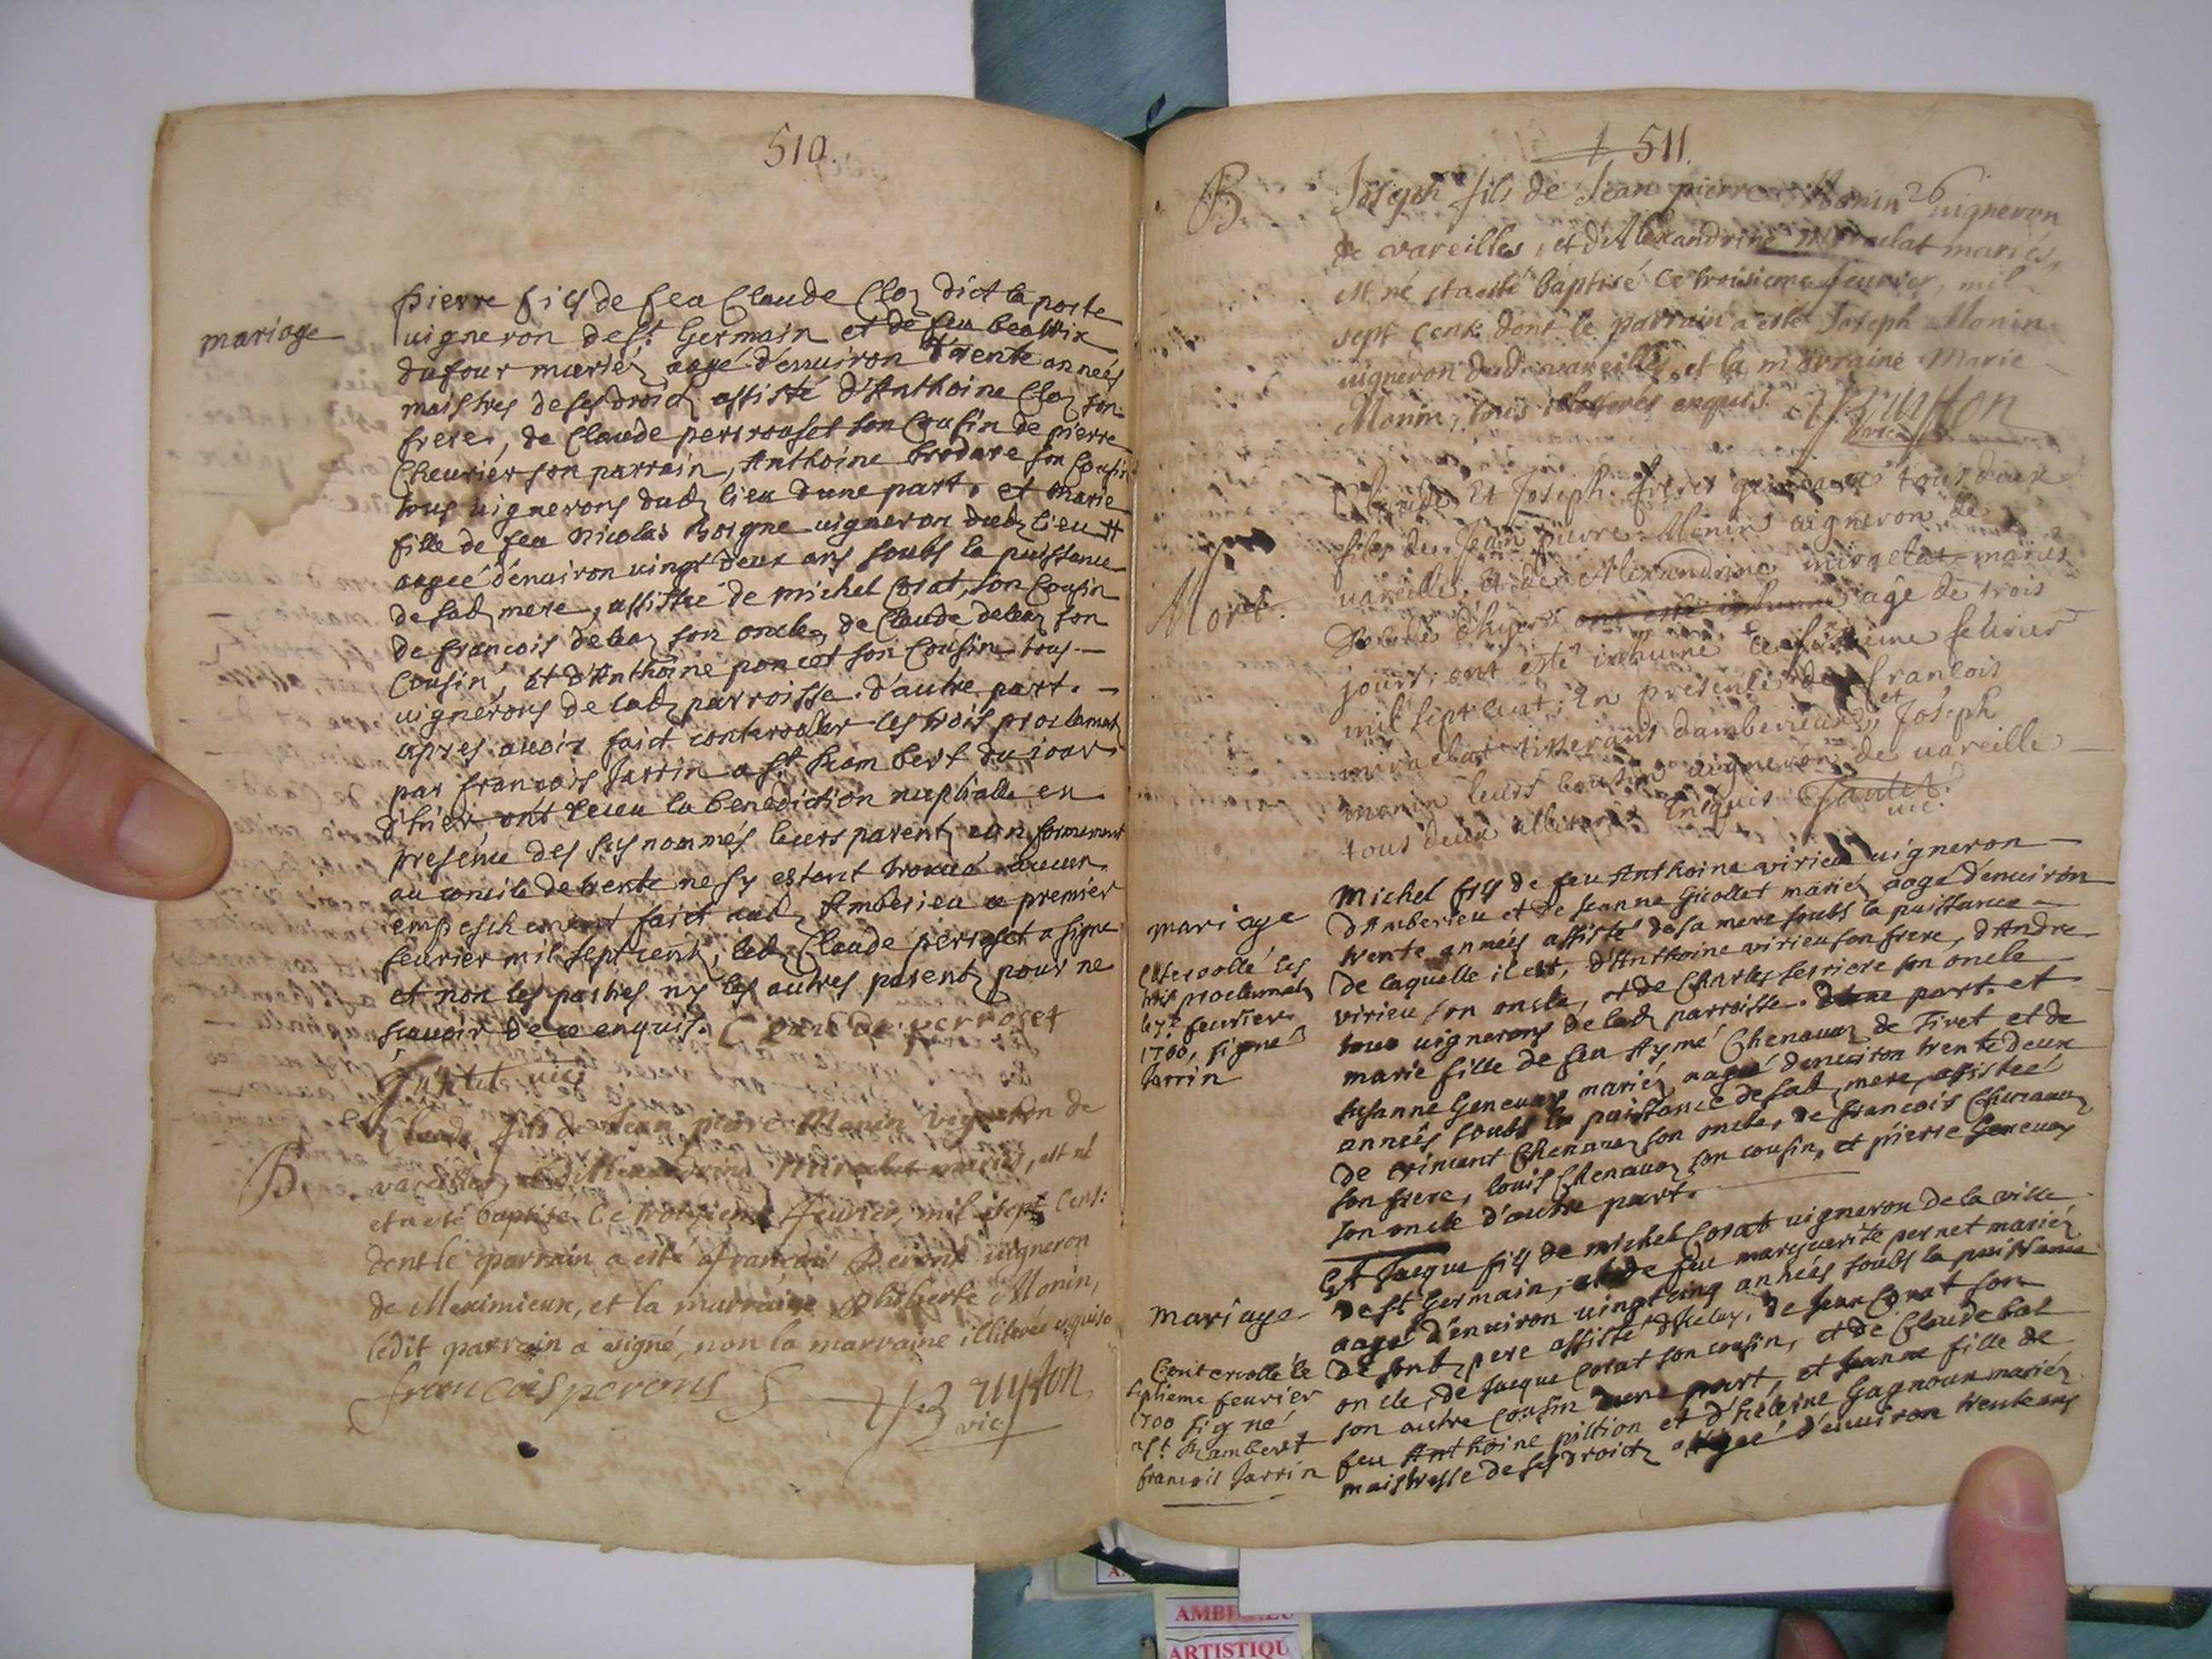 510.
mariage
pierre fils de feu Claude Cloz dict la porte
uigneron de st Germain et de feu beatrix
dufour mariéz aagé d'enuiron trente années
maistres de ses droictz assisté d'Anthoine Cloz son
frere, de Claude perrouset son Cousin de pierre
Cheurier son parrain, Anthoine brodare son Cousin
tous uignerons dudz lieu dune part. et marie
fille de feu Nicolas Borgne uigneron dudz lieu
aageé d'enuiron uingt deux ans soubs la puissance
de sadz mere, assistée de michel Corat, son Cousin
de francois deleaz son oncle, de Claude deleaz son
Cousin, et d'Anthoine poncet son Cousin tous
uignerons de ladz parroisse. d'autre part.
apres auoir faict conteroller les trois proclamatz
par francois Jarrin a st Rambert du iour
d'hier, ont receu la benediction nuptialle en
presence des susnommés leurs parentz conformement
au concile de trente ne sy estant trouué aucun
empeschement faict audz Amberieu ce premier
feurier mil sept centz, ledz Claude perroset a signé
et non les parties ny les autres parentz pour ne
scauoir de ce enquis. Claude perroset
Gantet vic
B.
Claude fils de Jean pierre Monin vigneron de
vareilles, et d'Alexandrine miraclat mariés, est né
et a esté baptisé ce troisieme feurier, mil sept cent:
dont le parrain a esté francois Perons uigneron
de Meximieux, et la marraine Philiberte Monin,
ledit parrain a signé, non la marraine illiterée enquise
francois perons Bruyson
vic
511.
26
B.
Joseph fils de Jean pierre Monin uigneron
de vareilles, et d'Alexandrine miraclat mariés,
est né et a esté baptisé ce troisieme feurier, mil
sept cent: dont le parrain a esté Joseph Monin
uigneron dud. uareilles, et la marraine Marie
Monin, tous illiterés enquis. Bruyson
vic
Mort.
Claude Et Joseph freres tous deux
fils de Jean pierre Monin uigneron de
uareille, et de Alexandrine miraclat mariés
d'hyer ont esté inhumé agé de trois
jours, ont esté inhumé ce feurier
mil sept cent, En presence de francois
miraclat tisserant damberieux, et Joseph
monin leurs cousin uigneron de uareille
tous deux illiterés Enquis Gantet
vic.
mariage
Controllé les
trois proclamatz
le 7e feurier
1700, signé
Jarrin
Michel fils de feu Anthoine virieu uigneron
d'Amberieu et de Jeanne Gicollet mariéz aagé d'enuiron
trente années assisté de sa mere soubs la puissance
de laquelle il est, d'Anthoine virieu son frere, d'Andre
virieu son oncle, et de Charles ferriere son oncle
tous uignerons de ladz parroisse. dune part. et
marie fille de feu Aymé Chenauaz de Tiret et de
Susanne Geneuay mariéz aageé d'enuiron trente deux
années soubs la puissance de sadz mere, assisteé
de criment Chenauaz son oncle, de francois Chenauaz
son frere, louis Chenauaz son cousin, et pierre Geneuay
son oncle d'autre part.
mariage
Conterolle le
septieme feurier
1700 signé
a st Rambert
francois Jarrin
Et Jacque fils de michel Corat uigneron de la uille
de st Germain, et de feu marguerite pernet mariéz
aagé d'enuiron uingt cinq années soubs la puissance
de sondz pere assisté d'iceluy, de Jean Corat son
oncle, de Jacque Corat son cousin, et de Claude bal
son autre cousin dune part, et Jeanne fille de
feu Anthoine piltion et d'heleine Gagnoux mariéz
maistresse de ses droictz aageé d'enuiron trente ans
AMBERIEU
ARTISTIQU